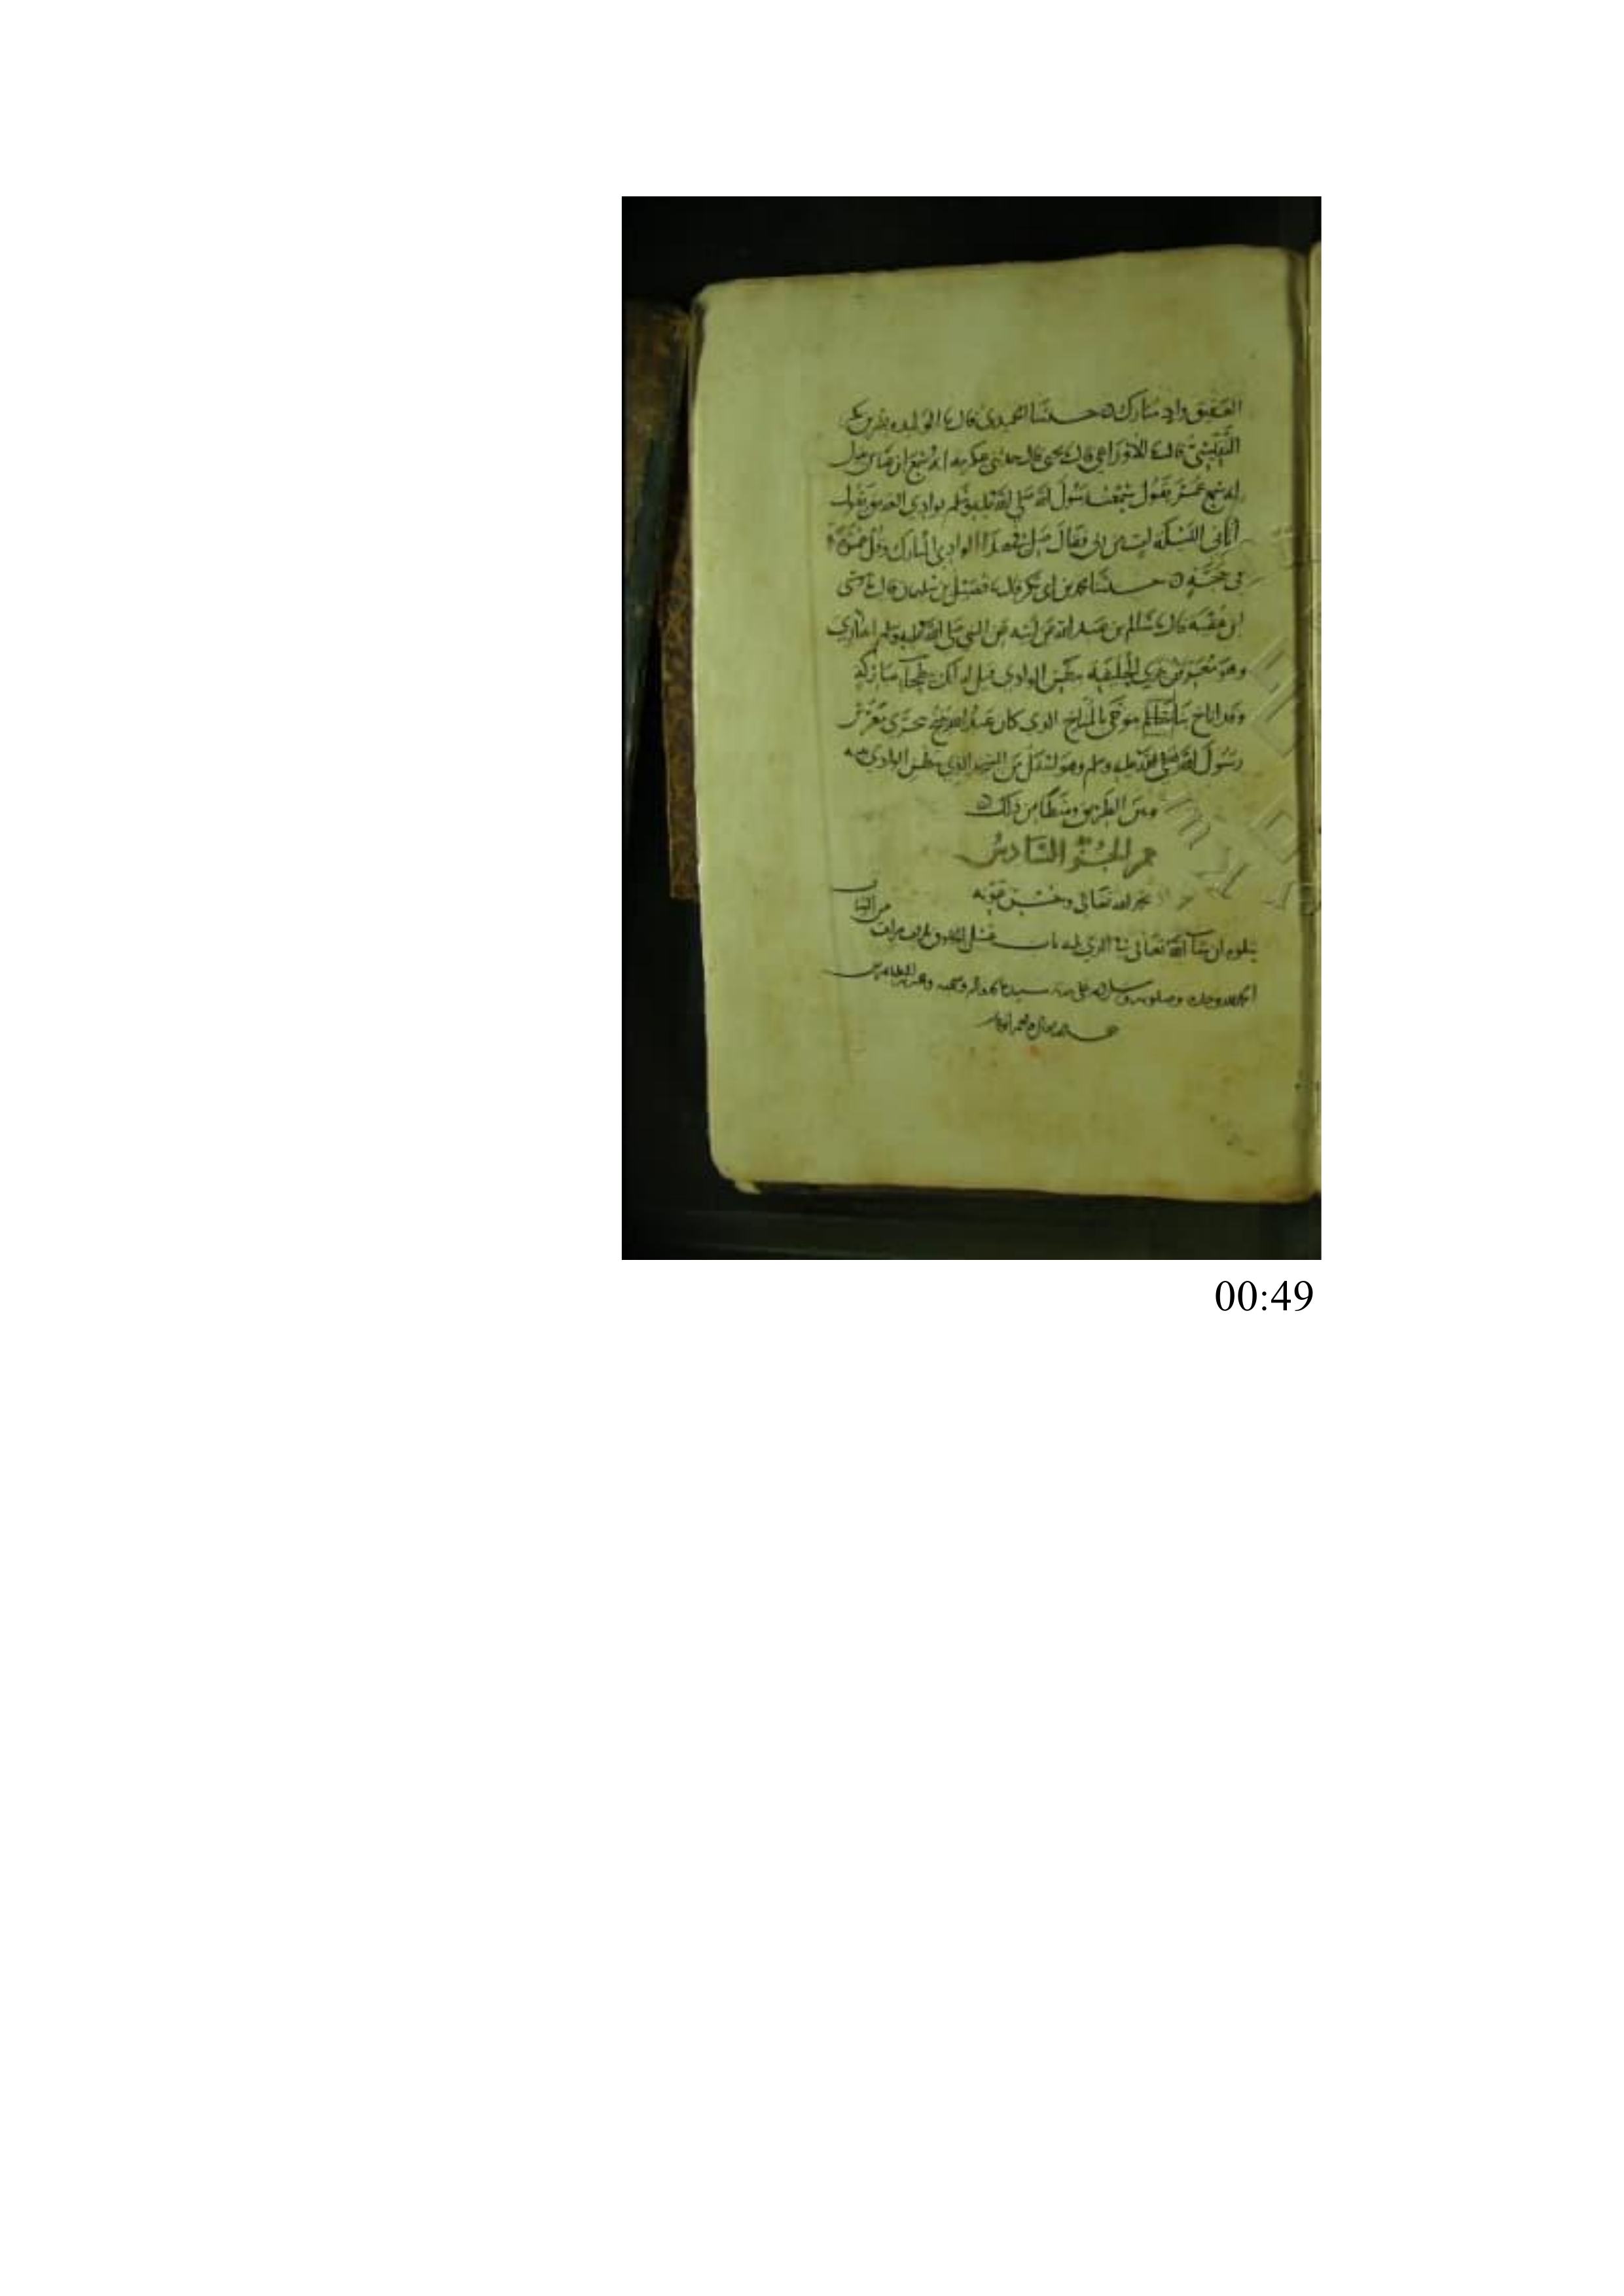 العقيق واد مبارك حدثنا الحميدي قال ثنا الوليد وبشر بن بكر
التنيسي قال ثنا الاوزاعي قال ثنا يحيى قال حدثني عكرمة انه سمع ابن عباس يقول
انه سمع عمر يقول سمعت رسول الله صلى الله عليه وسلم بوادي العقيق يقول
اتاني الليلة ات من ربي فقال صل في هذا الوادي المبارك وقل عمرة
في حجة حدثنا محمد بن ابي بكر قال ثنا فضيل بن سليمان قال ثنا موسى
ابن عقبة قال ثنا سالم بن عبد الله عن ابيه عن النبي صلى الله عليه وسلم انه اري
وهو معرس بذي الحليفة ببطن الوادي قيل له انك ببطحاء مباركة
وقد اناخ بنا سالم يتوخى بالمناخ الذي كان عبد الله ينيخ يتحرى معرس
رسول الله صلى الله عليه وسلم وهو اسفل من المسجد الذي ببطن الوادي بينه
وبين الطريق وسطا من ذلك
الجزء السادس
بحمد الله تعالى وحسن عونه
يتلوه ان شاء الله تعالى في الذي يليه باب غسل الخلوق ثلاث مرات من الثياب
الحمد لله وحده وصلوته على سيدنا محمد واله وصحبه
00:49